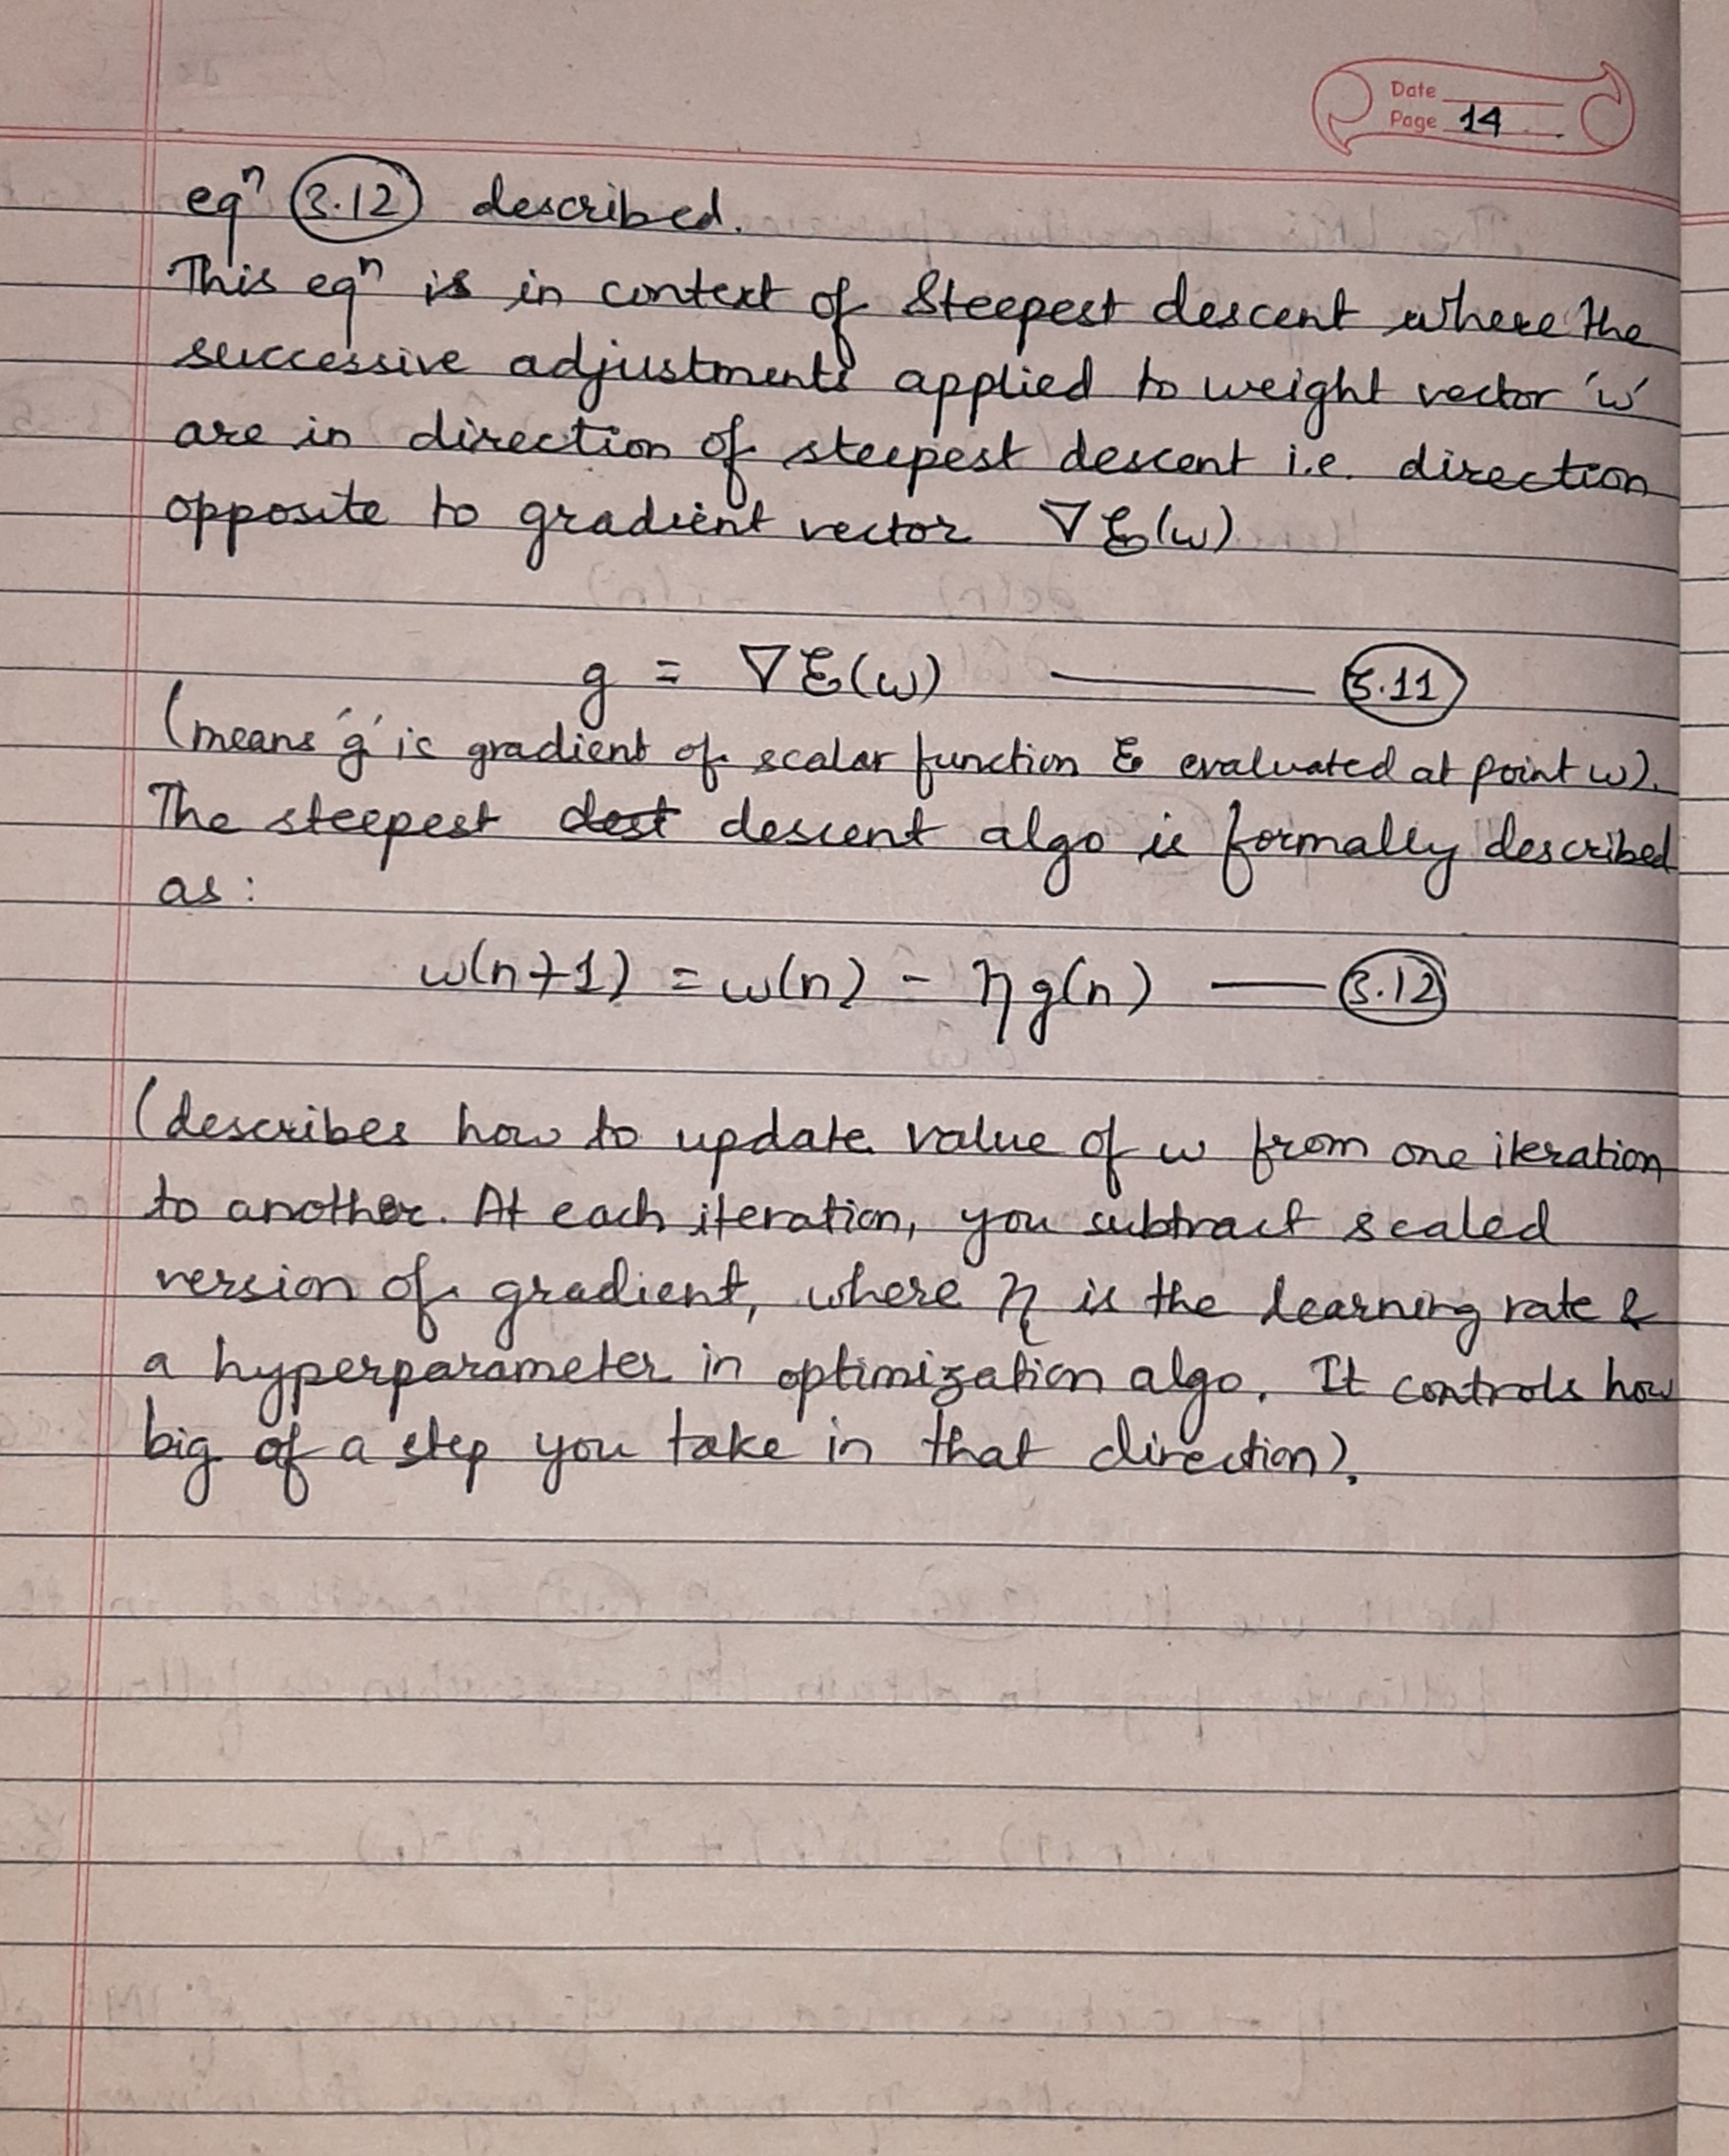 Date
Page 14
eqⁿ (3.12) described.
This eqⁿ is in context of Steepest descent where the
successive adjustments applied to weight vector 'w'
are in direction of steepest descent i.e. direction
opposite to gradient vector ∇ℰ(w)
g = ∇ℰ(w) —— (3.11)
(means 'g' is gradient of scalar function ℰ evaluated at point w).
The steepest ~~dest~~ descent algo is formally described
as:
w(n+1) = w(n) - ηg(n) —— (3.12)
(describes how to update value of w from one iteration
to another. At each iteration, you subtract scaled
version of gradient, where η is the learning rate &
a hyperparameter in optimization algo. It controls how
big of a step you take in that direction).